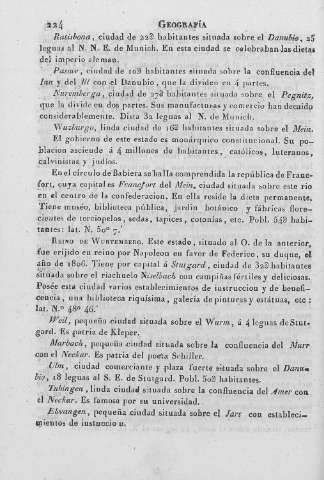 224 GEOGRAFÍA
Ratisbona, ciudad de 22$ habitantes situada sobre el Danubio, 25
leguas al N. N. E. de Munich. En esta ciudad se celebraban las dietas
del imperio aleman.
Pasau, ciudad de 10$ habitantes situada sobre la confluencia del
Inn y del Ill con el Danubio, que la dividen en 4 partes.
Nuremberga, ciudad de 27$ habitantes situada sobre el Pegnitz,
que la divide en dos partes. Sus manufacturas y comercio han decaido
considerablemente. Dista 32 leguas al N. de Munich.
Wuzburgo, linda ciudad de 16$ habitantes situada sobre el Mein.
El gobierno de este estado es monárquico constitucional. Su po-
blacion asciende á 4 millones de habitantes, católicos, luteranos,
calvinistas y judíos.
En el círculo de Babiera se halla comprendida la república de Franc-
fort, cuya capital es Francfort del Mein, ciudad situada sobre este rio
en el centro de la confederacion. En ella reside la dieta permanente.
Tiene museo, biblioteca pública, jardin botánico y fábricas flore-
cientes de terciopelos, sedas, tapices, cotonías, etc. Pobl. 54$ habi-
tantes: lat. N. 50° 7.'
REINO DE WURTEMBERG. Este estado, situado al O. de la anterior,
fue erijido en reino por Napoleon en favor de Federico, su duque, el
año de 1806. Tiene por capital á Stutgard, ciudad de 32$ habitantes
situada sobre el riachuelo Niselbach con campiñas fértiles y deliciosas.
Posée esta ciudad varios establecimientos de instruccion y de benefi-
cencia, una biblioteca riquísima, galería de pinturas y estátuas, etc:
lat. N.° 48° 46.'
Weil, pequeña ciudad situada sobre el Wurm, á 4 leguas de Stut-
gard. Es patria de Kleper.
Marbach, pequeña ciudad situada sobre la confluencia del Murr
con el Neckar. Es patria del poeta Schiller.
Ulm, ciudad comerciante y plaza fuerte situada sobre el Danu-
bio, 18 leguas al S. E. de Stutgard. Pobl. 50$ habitantes.
Tubingen, linda ciudad situada sobre la confluencia del Amer con
el Neckar. Es famosa por su universidad.
Elwangen, pequeña ciudad situada sobre el Jart con estableci-
mientos de instuccio n.